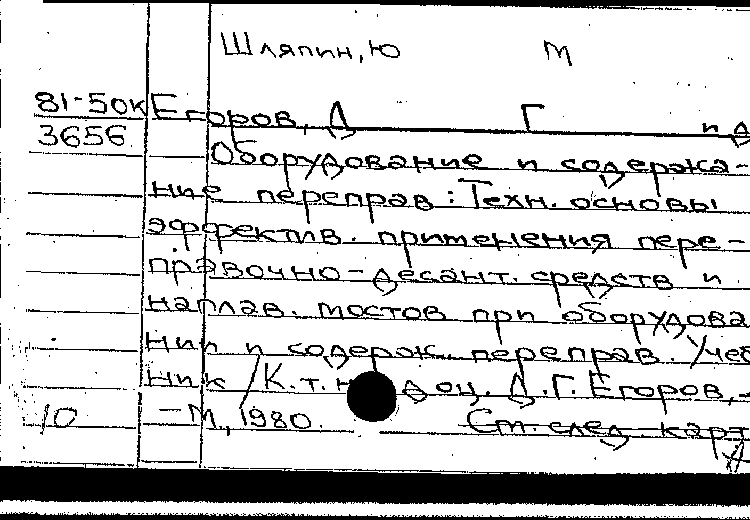 Шляпин, Ю М
81-50К Егоров, Д Г и д
3656
Оборудование и содержа-
ние переправ: Техн. основы
эффектив. применения пере-
правочно-десант. средств и
наплав. мостов при оборудова
нии и содерж. переправ. Учеб
ник / К.т.н доц. Д.Г. Егоров,-
10 -М, 1980. См. след. карт